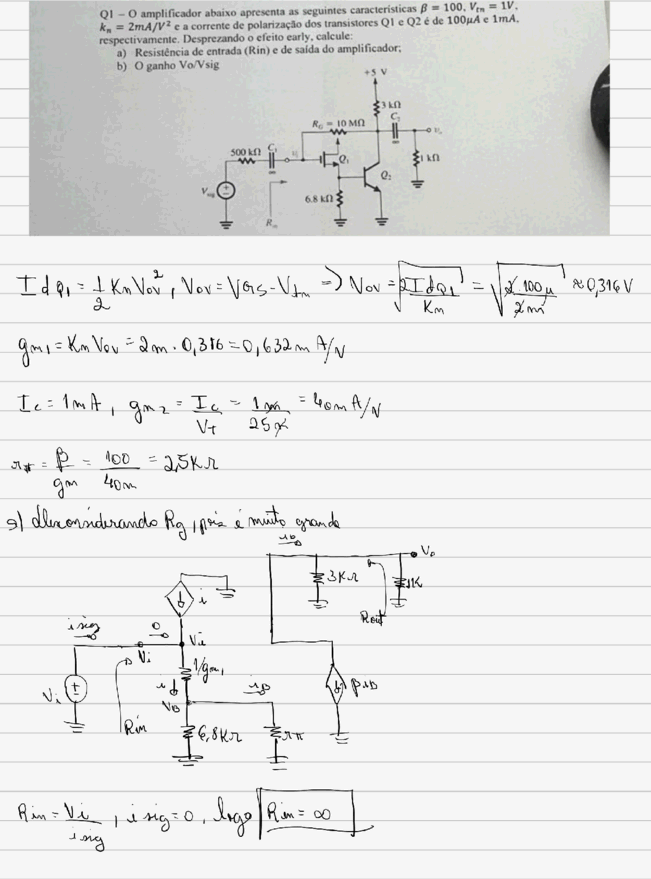 Q1 – O amplificador abaixo apresenta as seguintes características β = 100, Vtn = 1V,
kn = 2mA/V² e a corrente de polarização dos transistores Q1 e Q2 é de 100µA e 1mA,
respectivamente. Desprezando o efeito early, calcule:
a) Resistência de entrada (Rin) e de saída do amplificador;
b) O ganho Vo/Vsig
+5 V
3 kΩ
RG = 10 MΩ
C2
500 kΩ
C1
Q1
1 kΩ
Vsig
Q2
6.8 kΩ
Rin
IdQ1 = 1/2 Kn Vov², Vov = VGS - Vtn => Vov = √(2IdQ1/Kn) = √(2·100µ/2m) ≈ 0,316V
gm1 = Kn Vov = 2m · 0,316 = 0,632m A/V
Ic = 1mA, gm2 = Ic/VT = 1m/25m = 40mA/V
rπ = β/gm = 100/40m = 2,5KΩ
a) desconsiderando Rg, pois é muito grande
Vo
3KΩ
1K
Rout
i
isig
0
Vi
Vi
1/gm1
Vi
i
iB
βiB
VB
Rin
6,8KΩ
rπ
Rin = Vi/isig, isig = 0, logo Rin = ∞